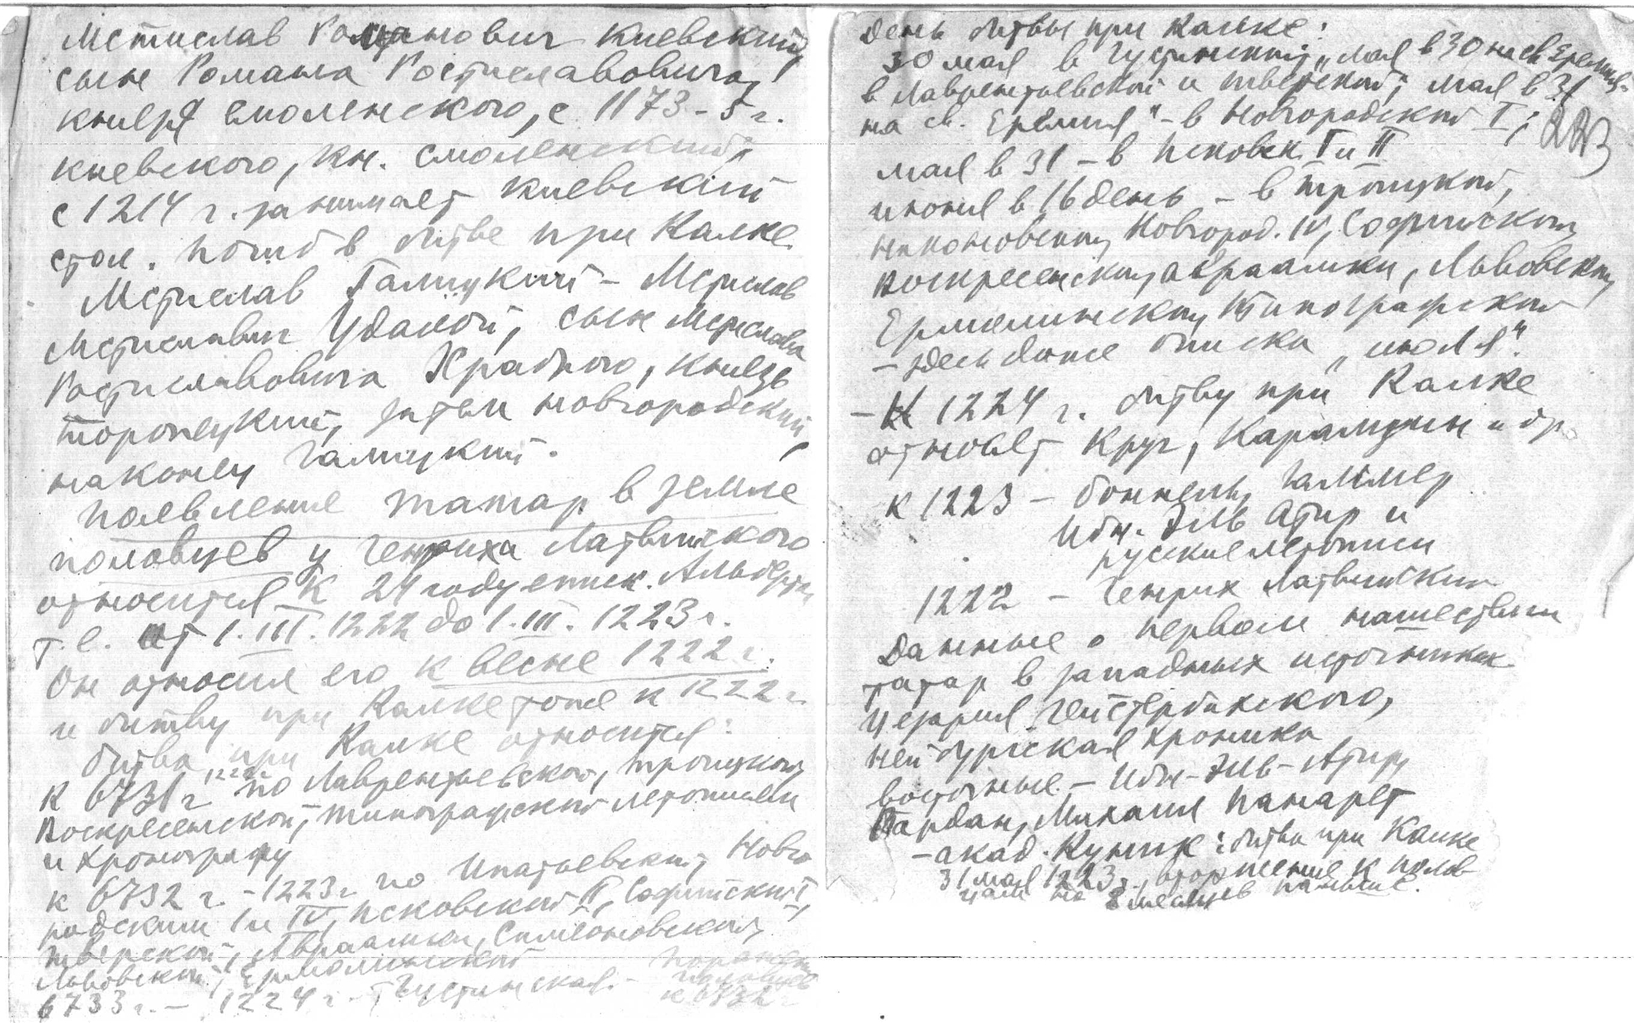 Мстислав Романович Киевский,
сын Романа Ростиславовича,
князя смоленского, с 1173-5 г.
киевского, кн. смоленский,
с 1214 г. занимает киевский
стол. Погиб в битве при Калке.
Мстислав Галицкий – Мстислав
Мстиславич Удалой, сын Мстислава
Ростиславовича Храброго, князь
торопецкий, затем новгородский,
наконец Галицкий.
Появление татар в земле
половцев у Генриха Латвийского
относится к 24 году еписк. Альберта,
т.е. от 1.III.1222 до 1.III.1223 г.
Он относил его к весне 1222 г.
и битву при Калке тоже к 1222 г.
Битва при Калке относится:
к 6731 г. 1222 г. по Лаврентьевской, Троицкой
Воскресенской, Типографской летописям
и хронографу
к 6732 г. – 1223 г. по Ипатьевский, Новго
родским I и IV, Псковской II, Софийской I,
Тверской, Авраамки, Симеоновской,
Львовский, Ермолинской
6733 г. – 1224 г. – Густинская. –
половцев
к 6732 г.
День битвы при Калке:
30 мая в Густинской, „мая в 30 на св. Еремия"
в Лаврентьевской и Тверской; мая в 31
на св. Еремия" – в Новгородской I;
223
мая в 31 – в Псковск. I и II
июня в 16 день – в Троицкой,
Никоновской, Новгород. IV, Софийской,
Воскресенской, Авраамки, Львовской,
Ермолинской, Типографской
– здесь даже описка „июля".
– К 1224 г. битву при Калке
относят Круг, Карамзин и др.
к 1223 – Боннель, Гаммер
Ибн-Эль Атир и
русские летописи
1222 – Генрих Латвийский
Данные о первом нашествии
татар в западных источниках
Цезария Гейстербахского,
Нейбургская хроника
восточные – Ибн-Эль-Атир,
Вардан, Михаил Панарет
– акад. Куник: битва при Калке
31 мая 1223 г., вторжение к полов
цам на 8 месяцев раньше.